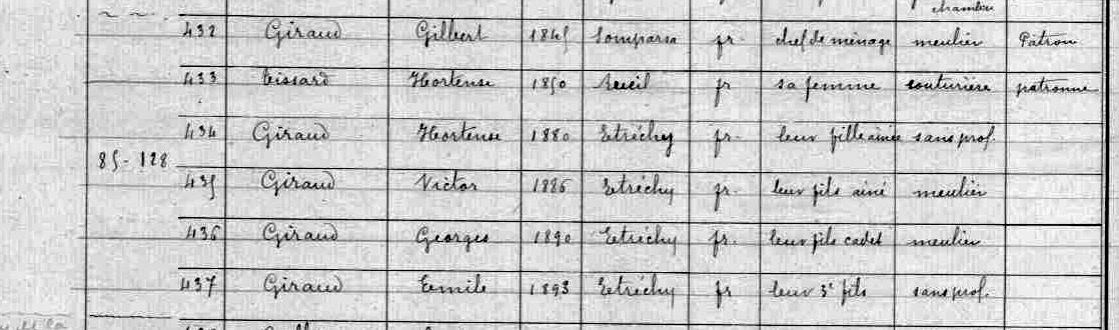 chambre
432 Giraud Gilbert 1845 fr. chef de ménage meulier Patron
433 Tissard Hortense 1850 Reuil fr sa femme couturière patronne
434 Giraud Hortense 1880 Etréchy fr. leur fille ainée sans prof.
85 - 128
435 Giraud Victor 1886 Etréchy fr. leur fils ainé meulier
436 Giraud Georges 1890 Etréchy fr. leur fils cadet meulier
437 Giraud Emile 1893 Etréchy fr leur 3e fils sans prof.